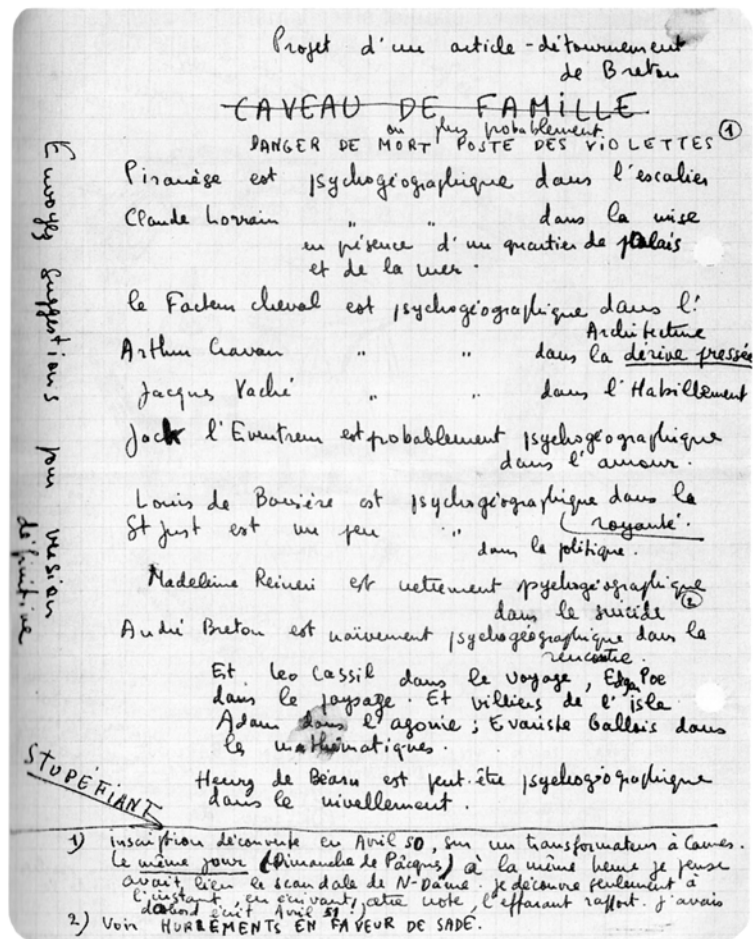 Projet d'un article-détournement
de Breton
CAVEAU DE FAMILLE
ou plus probablement
DANGER DE MORT POSTE DES VIOLETTES ①
Piranèse est psychogéographique dans l'escalier
Claude Lorrain " " dans la mise
en présence d'un quartier de palais
et de la mer.
le Facteur cheval est psychogéographique dans l'
Architecture
Arthur Cravan " " dans la dérive pressée
Jacques Vaché " " dans l'Habillement
Jack l'Eventreur est probablement psychogéographique
dans l'amour.
Louis de Bavière est psychogéographique dans la
royauté.
St Just est un peu " dans la politique.
Madeleine Reineri est nettement psychogéographique
dans le suicide ②
André Breton est naïvement psychogéographique dans la
rencontre.
Et Leo Cassil dans le voyage, Edgar Poe
dans le paysage. Et villiers de l'isle
Adam dans l'agonie ; Evariste Gallois dans
les mathématiques.
Henry de Béarn est peut-être psychogéographique
dans le nivellement.
Envoyez suggestions pour version
définitive
STUPÉFIANT
1) inscription découverte en Avril 50, sur un transformateur à Cannes.
Le même jour (Dimanche de Pâcques) à la même heure je pense
avait lieu le scandale de N-Dame. je découvre seulement à
l'instant, en écrivant cette note, l'effarant rapport. j'avais
d'abord écrit Avril 51 !)
2) Voir HURLEMENTS EN FAVEUR DE SADE.